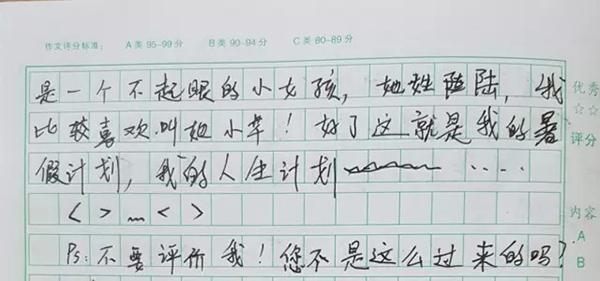 作文评分标准: A类 95-99分 B类 90-94分 C类 80-89分
是一个不起眼的小女孩,她姓陆,我 优秀
☆☆
比较喜欢叫她小苹!好了这就是我的暑 评分
假计划,我的人生计划 ....
<>…<> 内容
A
Ps:不要评价我!您不是这么过来的吗? B